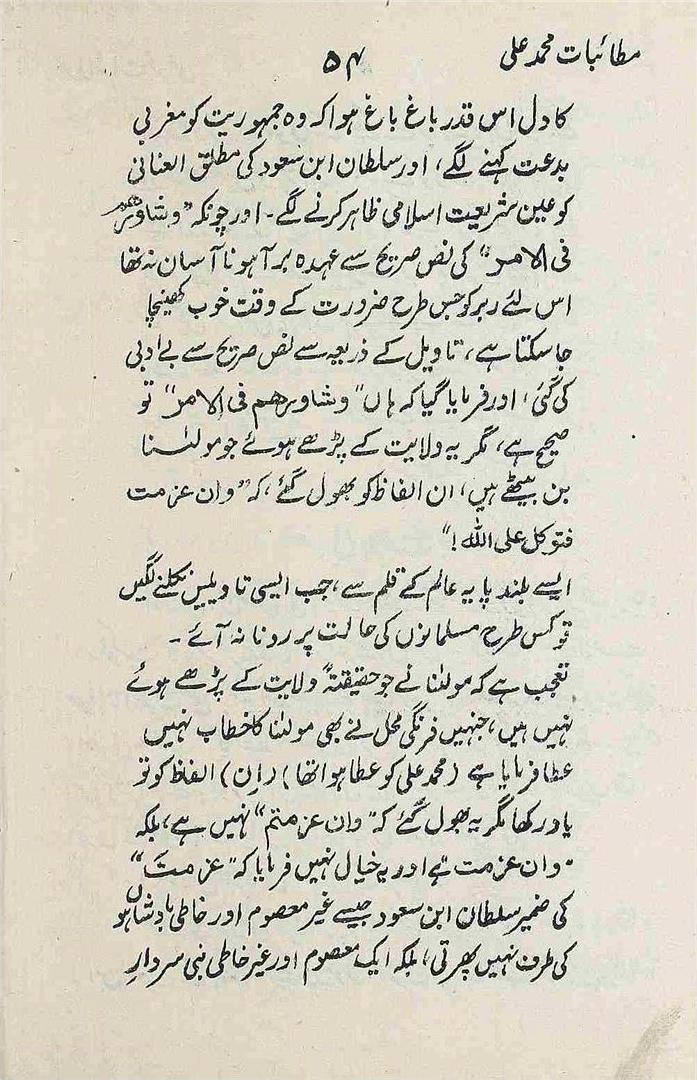 مطائبات محمد علی
۵۴
کا دل اس قدر باغ باغ ہوا کہ وہ جمہوریت کو مغربی
بدعت کہنے لگے، اور سلطان ابن سعود کی مطلق العنانی
کو عین شریعت اسلامی ظاہر کرنے لگے۔ اور چونکہ "وشاورهم
فی الامر" کی نص صریح سے عہدہ برآ ہونا آسان نہ تھا
اس لئے ربر کو جس طرح ضرورت کے وقت خوب کھینچا
جا سکتا ہے، تاویل کے ذریعہ سے نص صریح سے بے ادبی
کی گئی، اور فرمایا گیا کہ ہاں "وشاورهم فی الامر" تو
صحیح ہے، مگر یہ ولایت کے پڑھے ہوئے جو مولٰنا
بن بیٹھے ہیں، ان الفاظ کو بھول گئے، کہ "وان عزمت
فتوکل علی اللہ!"
ایسے بلند پایہ عالم کے قلم سے، جب ایسی تاویلیں نکلنے لگیں
تو کس طرح مسلمانوں کی حالت پر رونا نہ آئے۔
تعجب ہے کہ مولٰنا نے جو حقیقتہً ولایت کے پڑھے ہوئے
نہیں ہیں، جنہیں فرنگی محل نے بھی مولٰنا کا خطاب نہیں
عطا فرمایا ہے (محمد علی کو عطا ہوا تھا) (ان) الفاظ کو تو
یاد رکھا مگر یہ بھول گئے کہ "وان عزمتم" نہیں ہے، بلکہ
"وان عزمت" ہے اور یہ خیال نہیں فرمایا کہ "عزمتَ"
کی ضمیر سلطان ابن سعود جیسے غیر معصوم اور خاطی بادشاہوں
کی طرف نہیں پھرتی، بلکہ ایک معصوم اور غیر خاطی نبی سردارِ